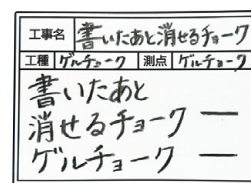 工事名 書いたあと消せるチョーク
工種 ゲルチョーク 測点 ゲルチョーク
書いたあと
消せるチョーク —
ゲルチョーク —